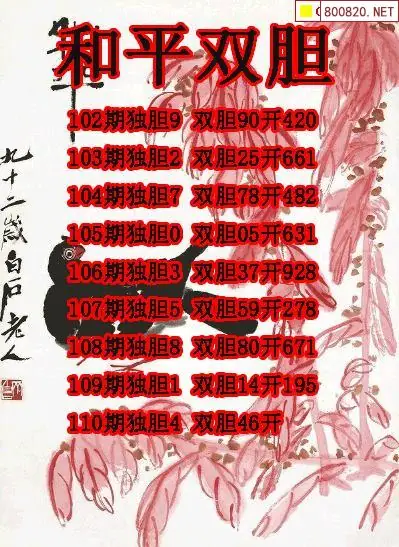 800820.NET
和平双胆
102期独胆9 双胆90开420
103期独胆2 双胆25开661
104期独胆7 双胆78开482
105期独胆0 双胆05开631
106期独胆3 双胆37开928
107期独胆5 双胆59开278
108期独胆8 双胆80开671
109期独胆1 双胆14开195
110期独胆4 双胆46开
九十二歲白石老人